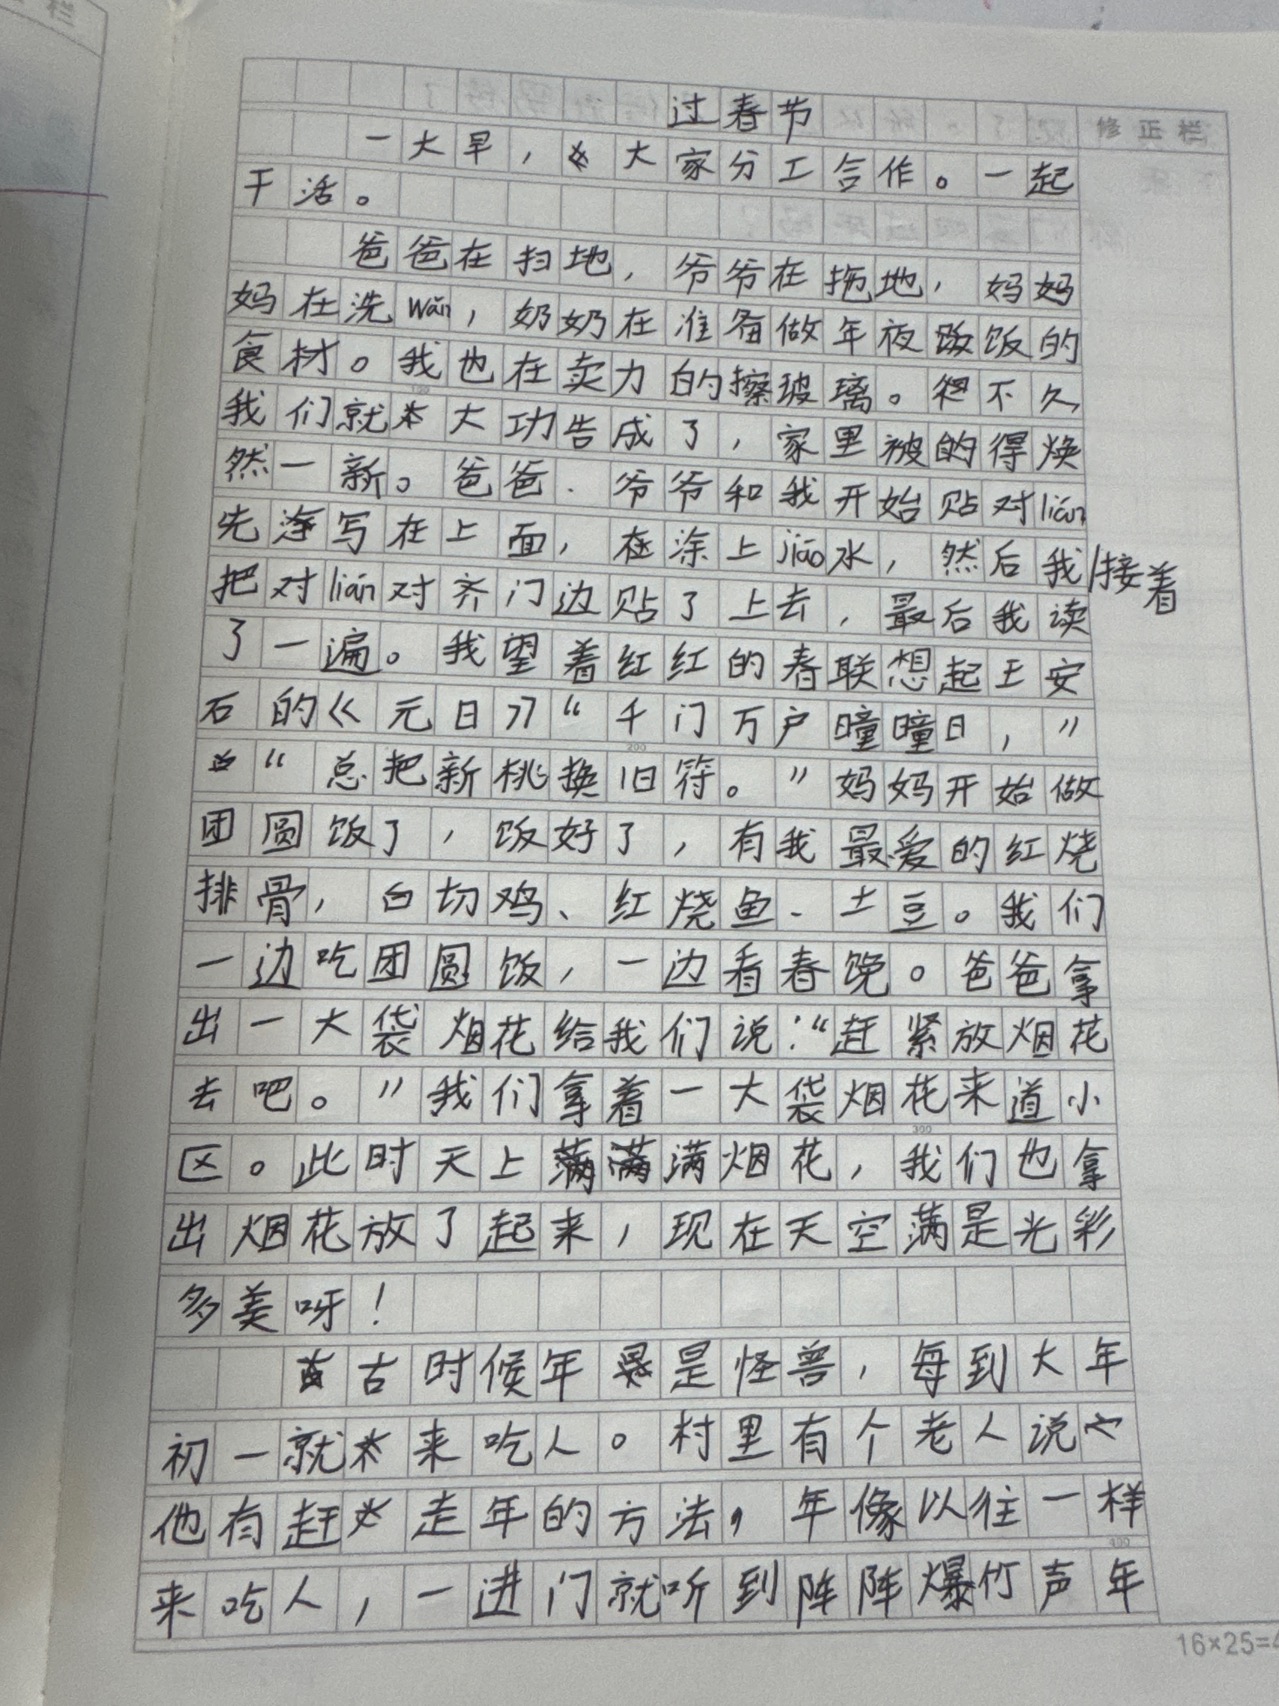 过春节
修正栏
一大早，大家分工合作。一起
干活。
爸爸在扫地，爷爷在拖地，妈妈
妈在洗wǎn，奶奶在准备做年夜饭饭的
食材。我也在卖力的擦玻璃。很不久
我们就大功告成了，家里被的得焕
然一新。爸爸、爷爷和我开始贴对lián
先写在上面，在涂上jiāo水，然后我接着
把对lián对齐门边贴了上去，最后我读
了一遍。我望着红红的春联想起王安
石的《元日》“千门万户曈曈日，”
“总把新桃换旧符。”妈妈开始做
团圆饭了，饭好了，有我最爱的红烧
排骨，白切鸡、红烧鱼、土豆。我们
一边吃团圆饭，一边看春晚。爸爸拿
出一大袋烟花给我们说：“赶紧放烟花
去吧。”我们拿着一大袋烟花来道小
区。此时天上满满满烟花，我们也拿
出烟花放了起来，现在天空满是光彩
多美呀！
古时候年是怪兽，每到大年
初一就来吃人。村里有个老人说
他有赶走年的方法，年像以往一样
来吃人，一进门就听到阵阵爆竹声年
16×25=4